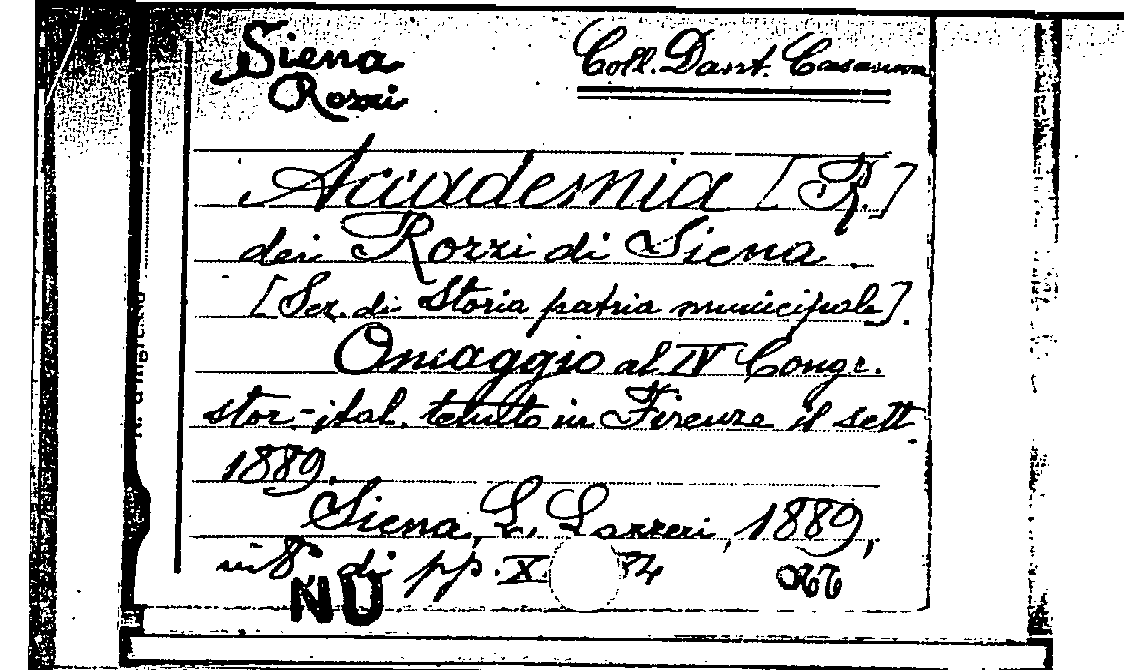 Siena
Rozzi
Coll. Dant. Casanova
Accademia [R.]
dei Rozzi di Siena.
[Sez. di Storia patria municipale].
Omaggio al IV Congr.
stor.-ital. tenuto in Firenze il sett.
1889.
Siena, L. Lazzeri, 1889,
in 8° di pp. X. 84
NU